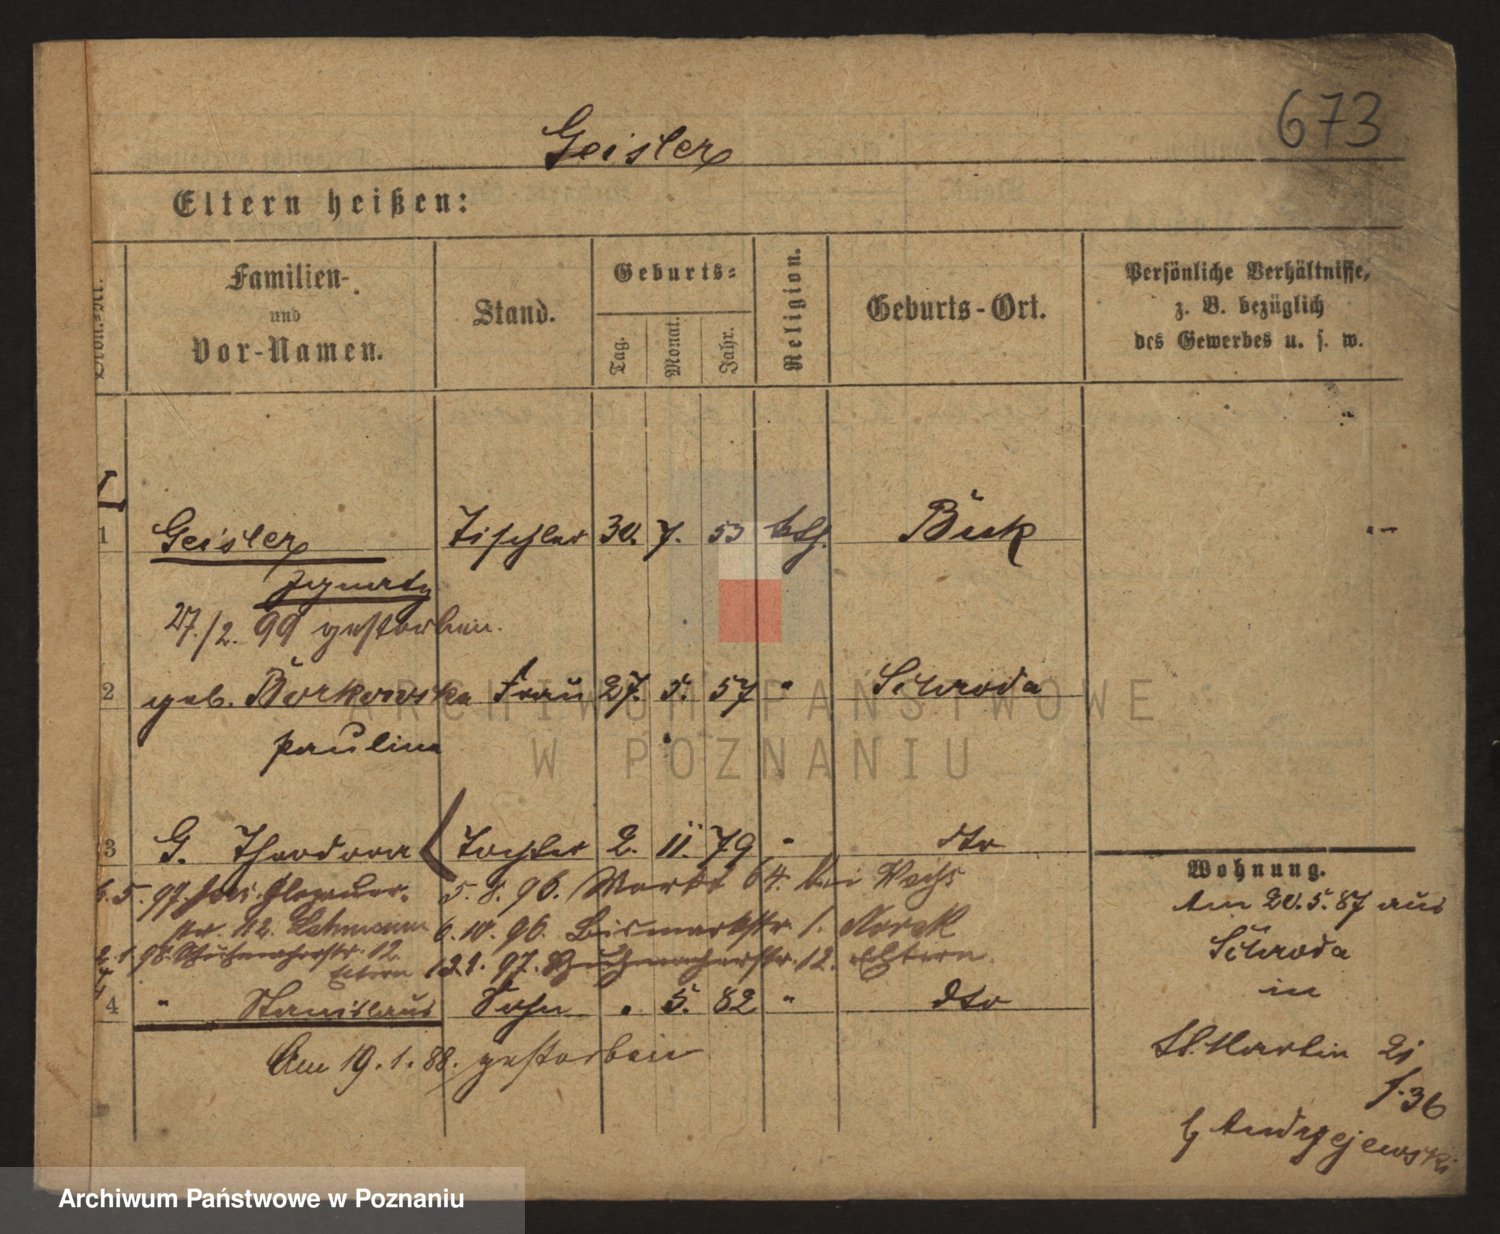 673
Geisler
Eltern heißen:
Familien-
und
Vor-Namen.
Stand.
Geburts-
Tag.
Monat.
Jahr.
Religion.
Geburts-Ort.
Persönliche Verhältnisse,
z. B. bezüglich
des Gewerbes u. s. w.
1 Geisler Tischler 30. 7. 53 kth. Buk
Ignatz
27./2. 99 gestorben.
2 geb. Borkowska Frau 27. 5. 57 " Schroda
Paulina
3 G. Theodora Tochter 2. 11. 79 " dto
6. 5. 97.
5. 8. 96. Markt 64. bei
nr. 42. Lehmann 6. 10. 96. Bismarkstr. 1. Nowak
2. 1. 98. Schuhmacherstr. 12
Eltern 12. 1. 97. Schuhmacherstr. 12. Eltern
4 " Stanislaus Sohn " 5. 82 " dto
Am 19. 1. 88. gestorben
Wohnung.
Am 20. 5. 87 aus
Schroda
in
St. Martin 21
f. 36
b/ Andrzejewski
ARCHIWUM PAŃSTWOWE
W POZNANIU
Archiwum Państwowe w Poznaniu